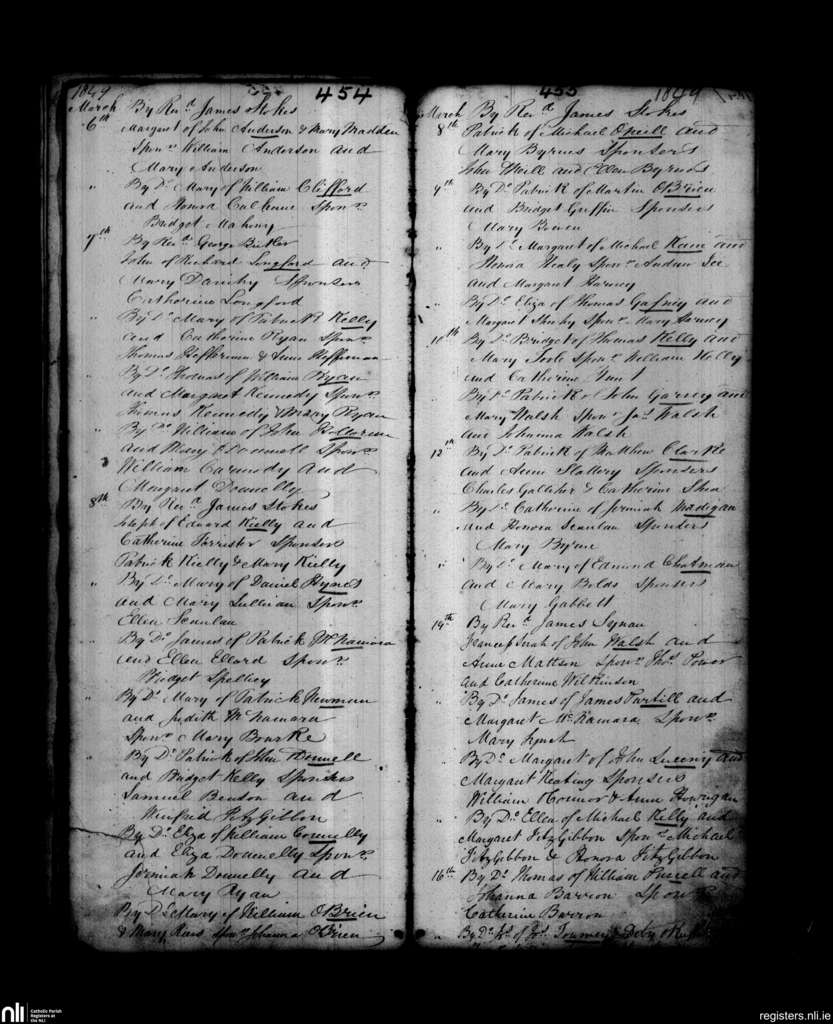 1849
454
March By Revd James Stokes
6th Margaret of John Anderson & Mary Madden
Sponrs William Anderson and
Mary Anderson
" By Do Mary of William Clifford
and Honora Culhane Sponrs
Bridget Mahony
7th By Revd George Butler
John of Richard Longford and
Mary Sponsers
Catherine Longford
" By Do Mary of Patrick Kelly
and Catherine Ryan Sponrs
Thomas Heffernan & Heffernan
" By Do Thomas of William Ryan
and Margaret Kennedy Sponrs
Thomas Kennedy & Mary Ryan
" By Do William of John
and Mary Sponrs
William Carmody and
Margaret Donnelly
8th By Revd James Stokes
Joseph of Edward Kielly and
Catherine Forrester Sponsers
Patrick Kielly & Mary Kielly
" By Do Mary of Daniel Hynes
and Mary Sullivan Sponrs
Ellen Scanlan
" By Do James of Patrick McNamara
and Ellen Ellard Sponrs
Bridget
" By Do Mary of Patrick Newman
and Judith McNamara
Sponrs Mary Bourke
" By Do Patrick of John Connell
and Bridget Kelly Sponsers
Samuel Benton and
Winifrid FitzGibbon
By Do Eliza of William Connelly
and Eliza Donnelly Sponrs
Jermiah Donnelly and
Mary Ryan
By Do Mary of William OBrien
& Mary Sponrs Johanna OBrien
455
1849
March By Revd James Stokes
8th Patrick of Michael ONeill and
Mary Byrnes Sponsers
John Neill and Ellen Byrnes
9th By Do Patrick of Martin OBrien
and Bridget Griffin Sponsers
Mary Bowen
" By Do Margaret of Michael Keane and
Honora Healy Sponrs Andrew Lee
and Margaret Harney
" By Do Eliza of Thomas Gafney and
Margaret Sheehy Sponr Mary
10th By Do Bridget of Thomas Kelly and
Mary Toole Sponrs William Kelly
and Catherine Hunt
By Do Patrick of John Garvey and
Mary Walsh Sponrs Jas Walsh
and Johanna Walsh
12th By Do Patrick of Matthew Clarke
and Anne Slattery Sponsers
Charles Gallaher & Catherine Shea
" By Do Catherine of Jermiah Madigan
and Honora Scanlan Sponsers
Mary Byrne
" By Do Mary of Edmund Choatman
and Mary Bolds Sponsers
Mary Gabbett
14th By Revd James Synan
Jeanephrah of John Walsh and
Anne Matton Sponrs Thos Power
and Catherine Wilkinson
" By Do James of James Purtill and
Margaret McNamara Sponrs
Mary Lynch
By Do Margaret of John Sweeny and
Margaret Keating Sponsers
William Connor & Anne Hourigan
" By Do Ellen of Michael Kelly and
Margaret FitzGibbon Sponrs Michael
FitzGibbon & Honora FitzGibbon
16th By Do Thomas of William Purcell and
Johanna Barron Sponrs
Catherine Barron
" By Do Js of Js &
nli
Catholic Parish
Registers at
the NLI
registers.nli.ie